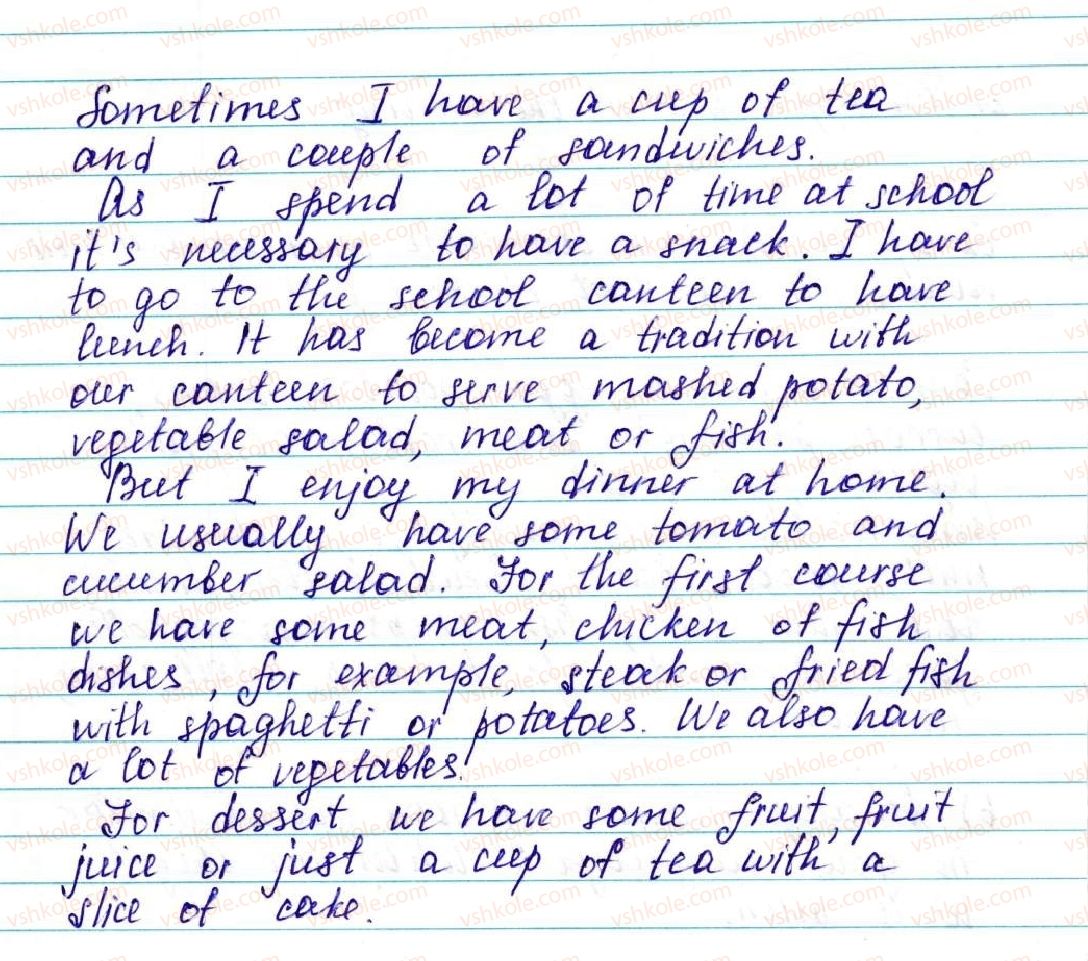 Sometimes I have a cup of tea
and a couple of sandwiches.
As I spend a lot of time at school
it's necessary to have a snack. I have
to go to the school canteen to have
lunch. It has become a tradition with
our canteen to serve mashed potato,
vegetable salad, meat or fish.
But I enjoy my dinner at home.
We usually have some tomato and
cucumber salad. For the first course
we have some meat, chicken of fish
dishes, for example, steak or fried fish
with spaghetti or potatoes. We also have
a lot of vegetables.
For dessert we have some fruit, fruit
juice or just a cup of tea with a
slice of cake.